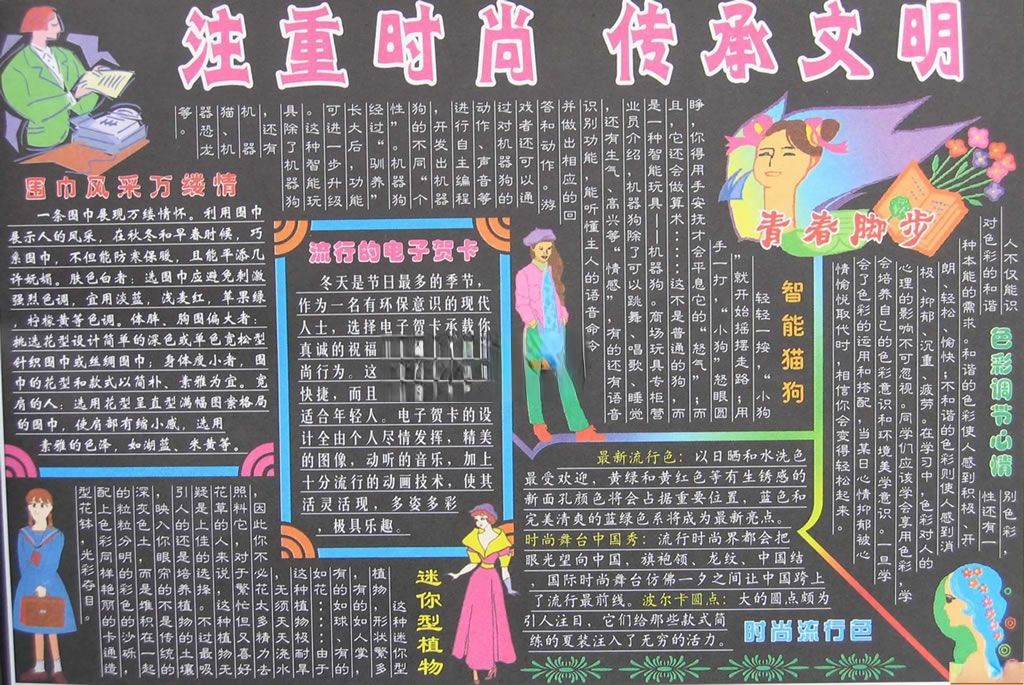 注重时尚 传承文明
围巾风采万缕情
一条围巾展现万缕情怀。利用围巾
展示人的风采，在秋冬和早春时候，巧
系围巾，不但能防寒保暖，且能平添几
许妩媚。肤色白者：选围巾应避免刺激
强烈色调，宜用淡蓝，浅麦红，苹果绿
，柠檬黄等色调。体胖、胸围偏大者：
挑选花型设计简单的深色或单色宽松型
针织围巾或丝绸围巾；身体瘦小者，围
巾的花型和款式以简朴、素雅为宜。宽
肩的人：选用花型呈直型满幅图案格局
的围巾，使肩部有缩小感，选用
素雅的色泽，如湖蓝、朱黄等。
流行的电子贺卡
冬天是节日最多的季节，
作为一名有环保意识的现代
人士，选择电子贺卡承载你
真诚的祝福
尚行为。这
快捷，而且
适合年轻人。电子贺卡的设
计全由个人尽情发挥，精美
的图像，动听的音乐，加上
十分流行的动画技术，使其
活灵活现，多姿多彩
，极具乐趣。
智能猫狗
轻轻一按，“小狗
”就开始摇摇走路，用
手一打，“小狗”怒眼圆
睁，你得用手安抚才会平息它的“怒气”，而
且，它还会做算术……这不是普通的狗，而
是一种智能玩具——机器狗。商场玩具专柜营
业员介绍，机器狗除了可以跳舞、唱歌、睡觉
，还有生气、高兴等“情感”，有的还有语音
识别功能，能听懂主人的语音命令
并做出相应的回
答和动作。游
戏者还可以通
过对机器狗的
动作、声音等
进行自主编程
，开发出机器
狗的不同“个
性”。机器狗
经过“驯养”
长大后，功能
可进一步升级
。这种智能玩
具除了机器狗
，还有
机器
猫、机
器恐龙
等。
青春脚步
色彩调节心情
人不仅能识
别色彩，
对色彩的和谐
性还有一
种本能的需求。和谐的色彩使人感到积极、开
朗、轻松、愉快；不和谐的色彩则使人感到消
极、抑郁、沉重、疲劳。在学习中，色彩对人的
心理的影响不可忽视。同学们应该学会享用色彩，学
会培养自己的色彩意识和环境美学意识。一旦学
会了色彩的运用和搭配，当某日心情抑郁被心
情愉悦取代时，相信你会变得轻松起来。
最新流行色：以日晒和水洗色
最受欢迎，黄绿和黄红色等有生锈感的
新面孔颜色将会占据重要位置，蓝色和
完美清爽的蓝绿色系将成为最新亮点。
时尚舞台中国秀：流行时尚界都会把
眼光望向中国、旗袍领、龙纹、中国结
国际时尚舞台仿佛一夕之间让中国跨上
了流行最前线。波尔卡圆点：大的圆点颇为
引人注目，它们给那些款式简
练的夏装注入了无穷的活力。
时尚流行色
迷你型植物
这种迷你型
植物，形状繁多
，有的如人掌
有的如球、有的
如花……由于
这种植物极耐旱
，无须天天浇水
，因此你不必花太多精力去
照料它，对于繁忙但又喜好
花草的上人来说，这种植物无
疑是上佳的选择。不过最吸
引人的还是培养植物的土壤
，映入你眼帘的不再是往日的
深灰色土，而是堆积在一起
的粒粒分明的彩色的沙砾，
配上色彩同样艳丽的卡通造
型花钵，光彩夺目。